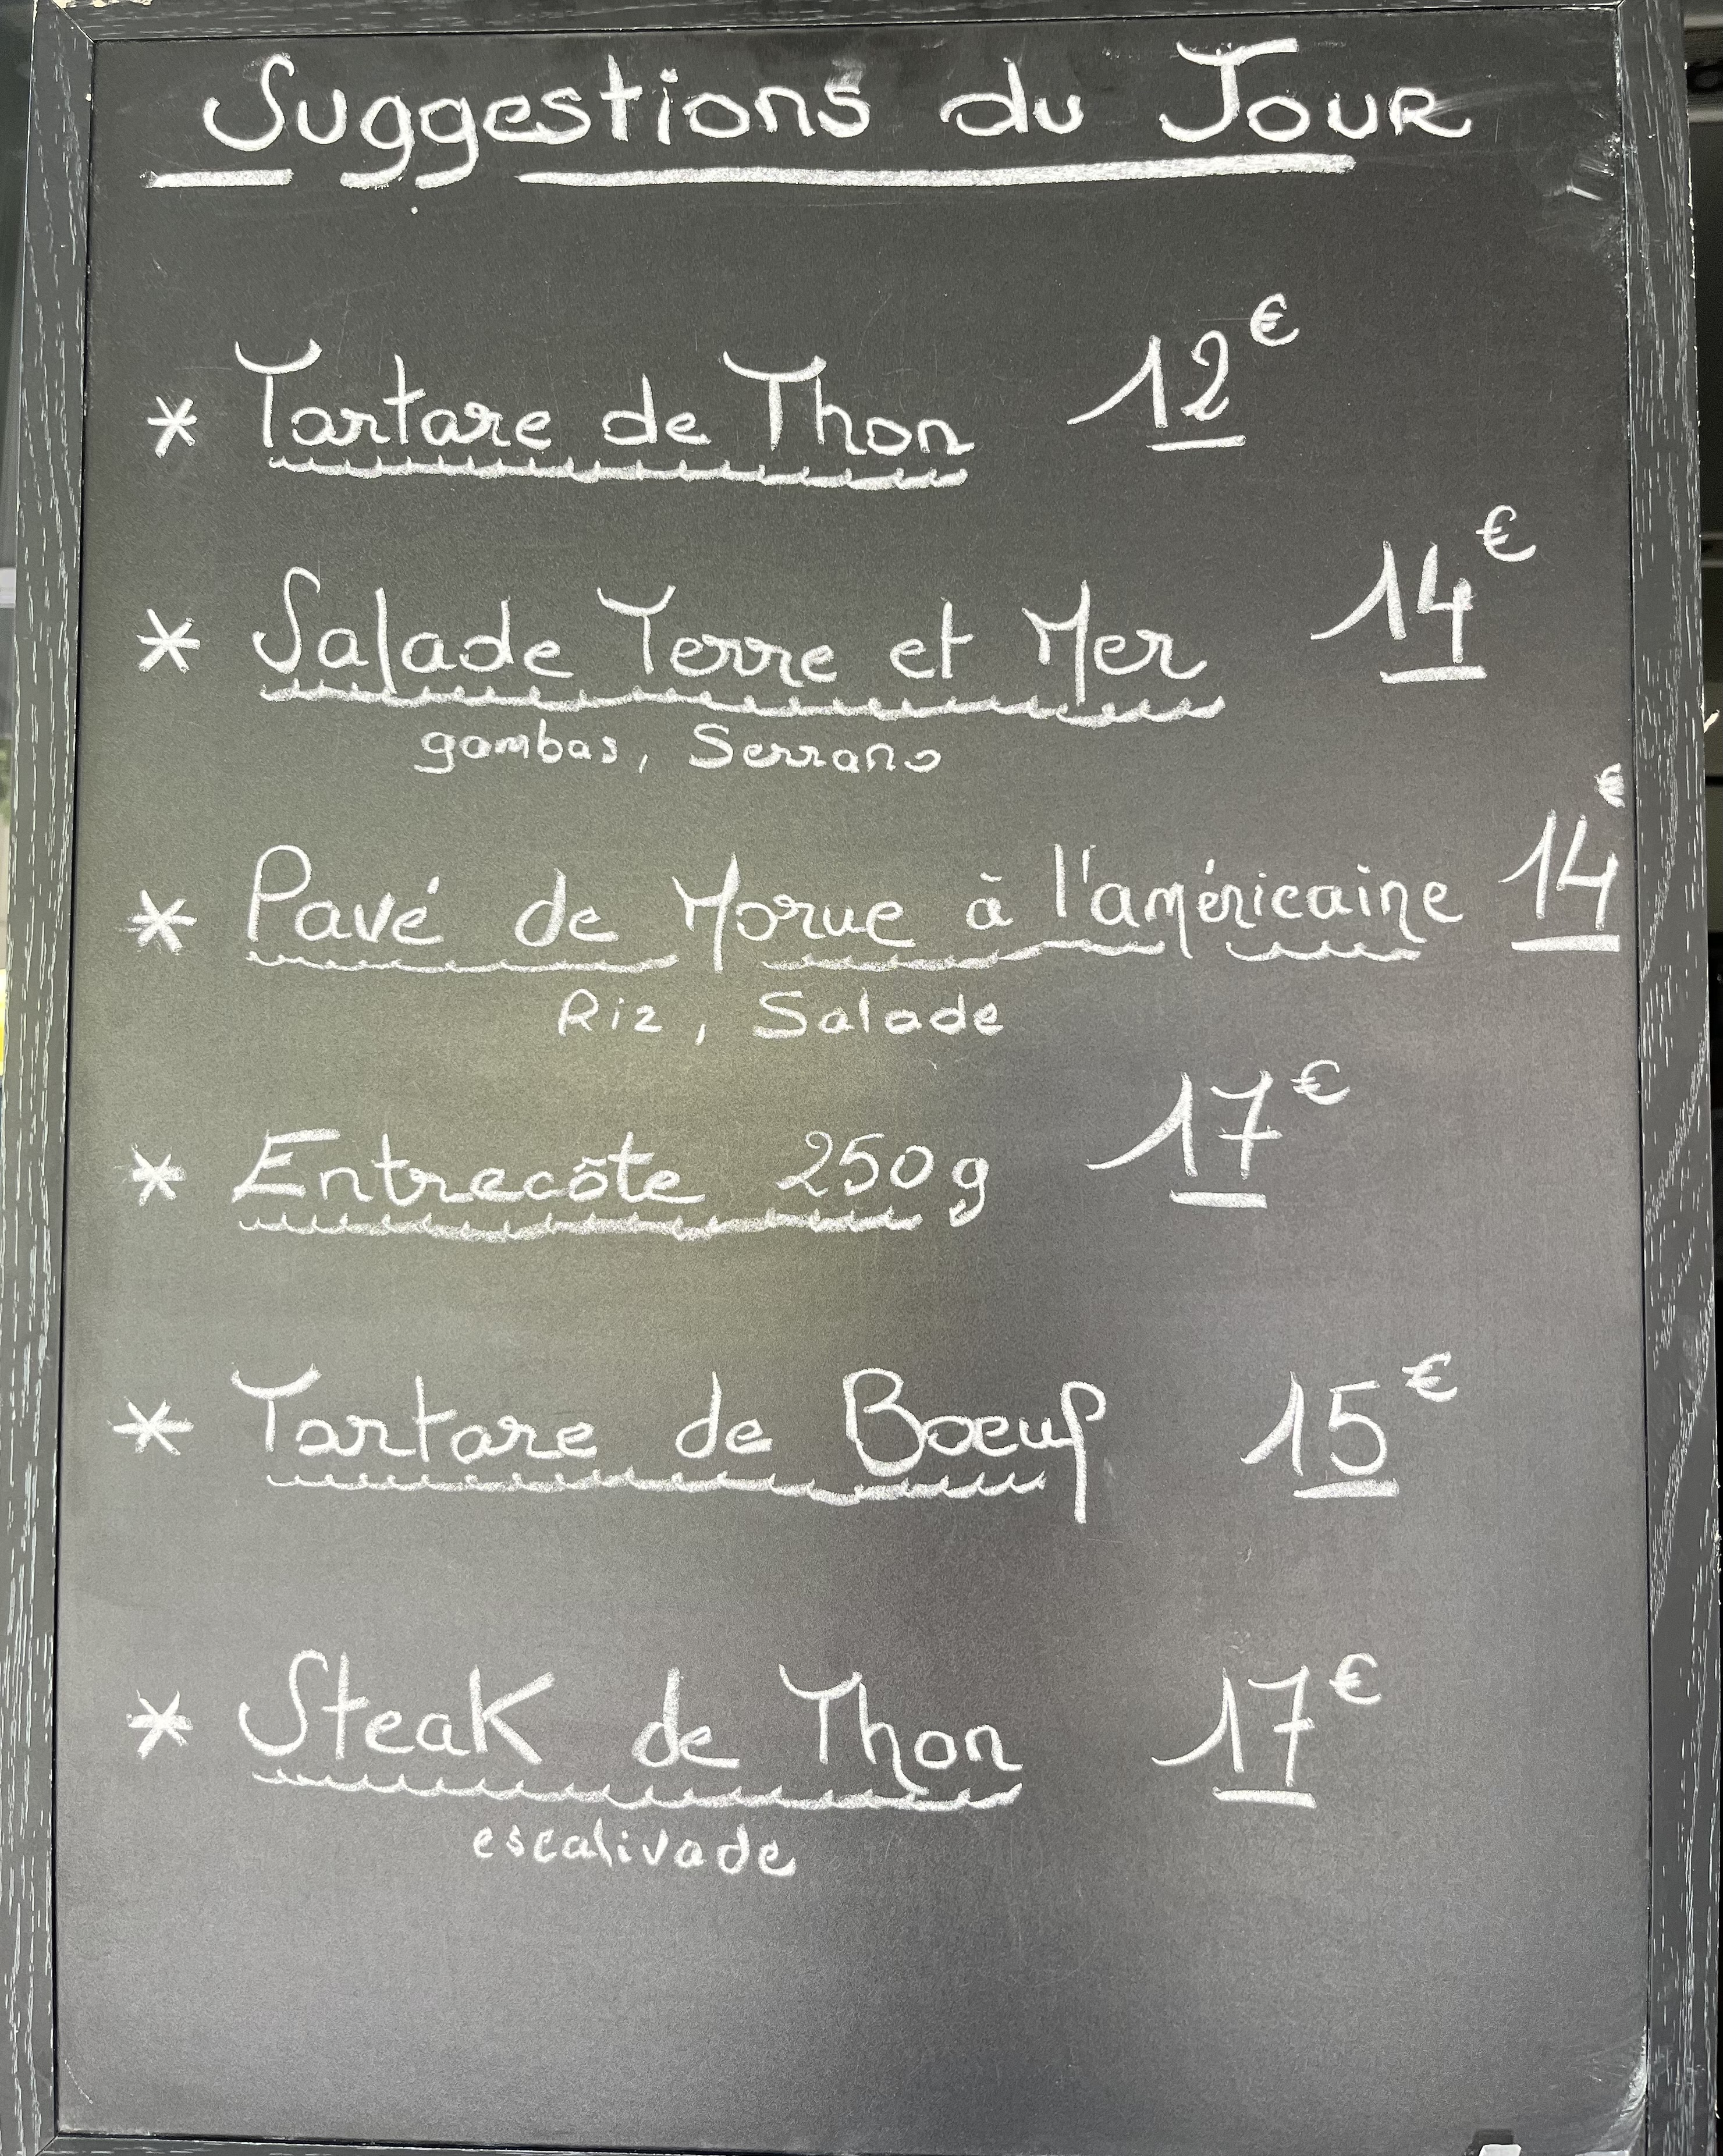 Suggestions du Jour
* Tartare de Thon 12€
* Salade Terre et Mer 14€
gambas, Serrano
* Pavé de Morue à l'américaine 14€
Riz, Salade
* Entrecôte 250g 17€
* Tartare de Bœuf 15€
* Steak de Thon 17€
escalivade